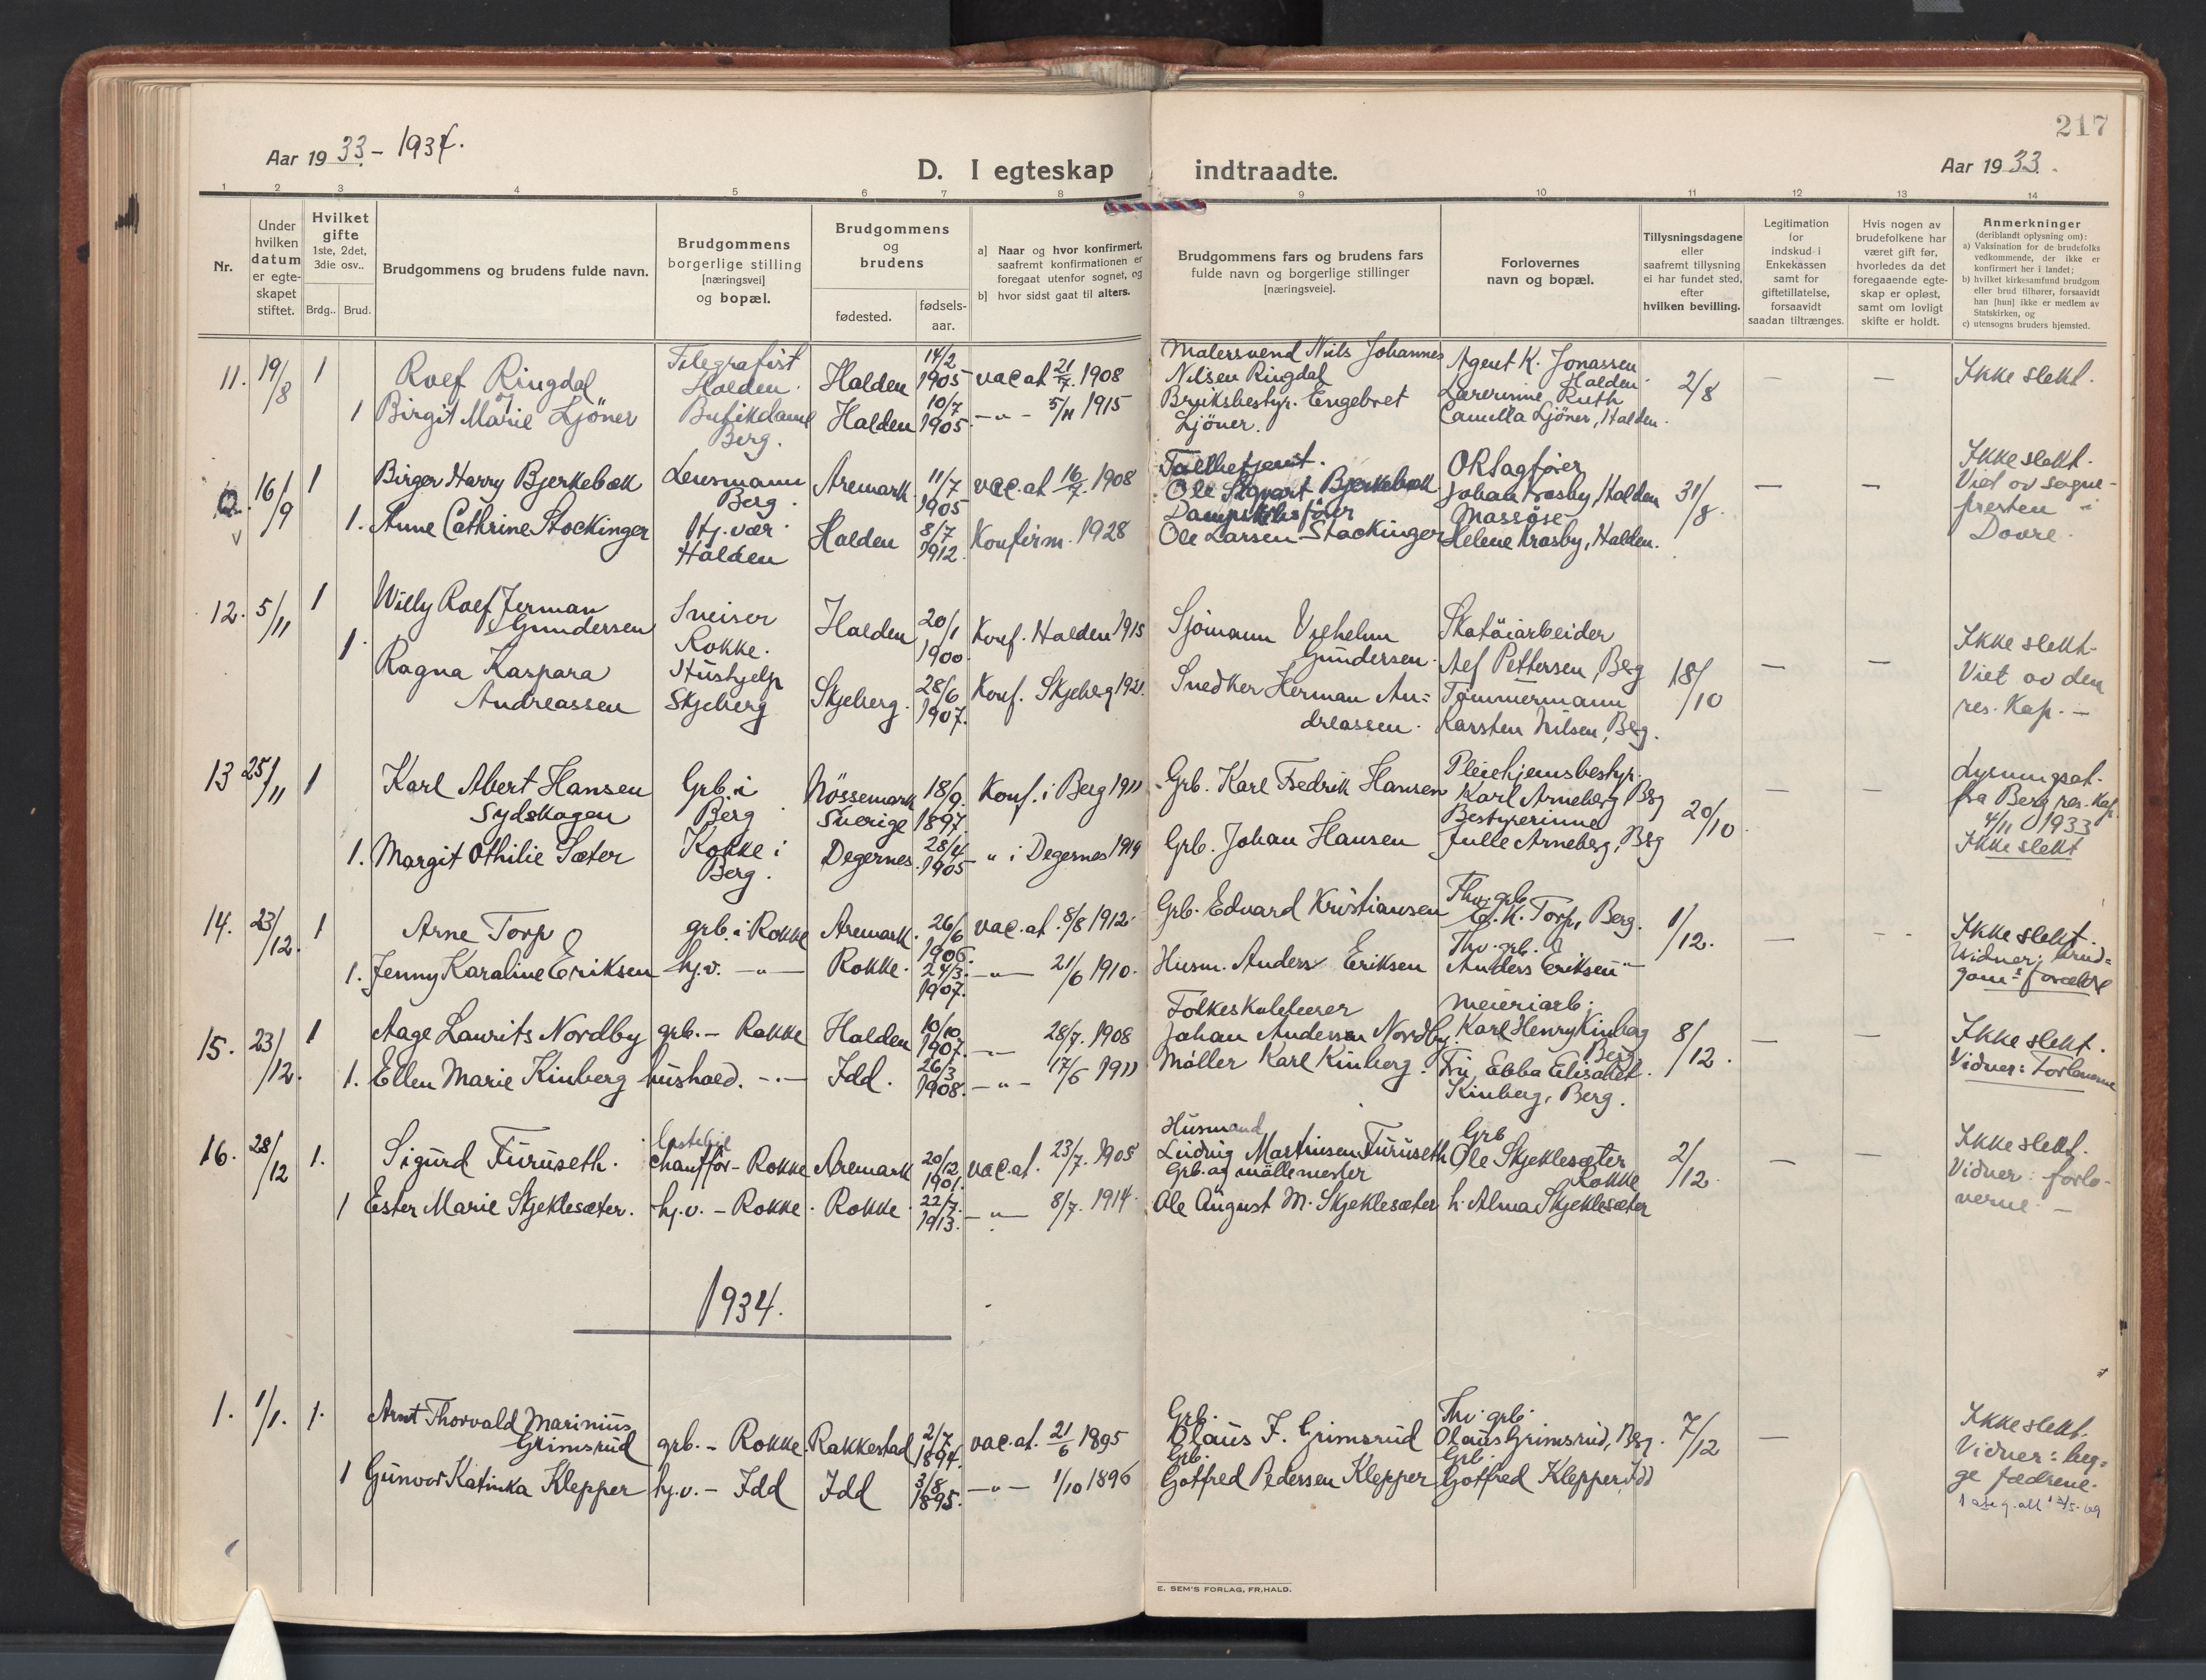 217
Aar 1933 - 1934.
D. I egteskap indtraadte.
Aar 1933.
1 2 3 4 5 6 7 8 9 10 11 12 13 14
Nr.
Under hvilken datum er egteskapet stiftet.
Hvilket gifte 1ste, 2det, 3die osv..
Brdg.. Brud.
Brudgommens og brudens fulde navn.
Brudgommens borgerlige stilling [næringsvei] og bopæl.
Brudgommens og brudens
fødested.
fødsels-aar.
a] Naar og hvor konfirmert, saafremt konfirmationen er foregaat utenfor sognet, og
b] hvor sidst gaat til alters.
Brudgommens fars og brudens fars fulde navn og borgerlige stillinger [næringsveie].
Forlovernes navn og bopæl.
Tillysningsdagene eller saafremt tillysning ei har fundet sted, efter hvilken bevilling.
Legitimation for indskud i Enkekassen samt for giftetillatelse, forsaavidt saadan tiltrænges.
Hvis nogen av brudefolkene har været gift før, hvorledes da det foregaaende egteskap er opløst, samt om lovligt skifte er holdt.
Anmerkninger
(deriblandt oplysning om):
a) Vaksination for de brudefolks vedkommende, der ikke er konfirmert her i landet;
b) hvilket kirkesamfund brudgom eller brud tilhører, forsaavidt han [hun] ikke er medlem av Statskirken, og
c) utensogns bruders hjemsted.
11. 19/8 1 Rolf Ringdal Telegrafist Halden. Halden 14/2 1905 vac.at 21/7. 1908 Malersvend Nils Johannes Nilsen Ringdal Agent K. Jonassen Halden. 2/8 — — Ikke slekt.
og
1 Birgit Marie Ljöner Butikdame Berg. Halden 10/7 1905. —"— 5/11 1915 Bruksbestyr. Engebret Ljöner. Lærerinne Ruth Camilla Ljöner, Halden.
16/9 1 Birger Harry Bjerkebæk Lensmann Berg. Aremark 11/7 1905 vac.at 16/7. 1908 Ole Sigvart Bjerkebæk O.R.sagfører Johan Krosby, Halden 31/8. — — Ikke slekt. Viet av sogne-presten i Dovre.
1. Anne Cathrine Stockinger Hj.vær. Halden Halden 8/7 1912. Konfirm. 1928 Dampskibsfører Ole Larsen Stockinger Massöse Helene Krosby, Halden.
12. 5/11 1 Willy Rolf Jerman Gundersen Sneiser Rokke. Halden 20/1 1900 Konf. Halden 1915 Sjömann Vilhelm Gundersen. Skotöiarbeider Alf Pettersen, Berg 18/10 — — Ikke slekt. Viet av den res. Kap. —
1. Ragna Kaspara Andreassen Hushjelp Skjeberg Skjeberg. 28/6 1907. Konf. Skjeberg 1921. Snedker Herman An=dreassen. Tömmermann Karsten Nilsen, Berg.
13 25/11 1 Karl Albert Hansen Sydskogen Grb. i Berg Nössemark Sverige 18/9. 1897. Konf. i Berg 1911 Grb. Karl Fredrik Hansen Pleiehjemsbestyr. Karl Arneberg, Berg 20/10. — — Lysningsat. fra Berg res. Kap. 4/11 1933 Ikke slekt
1. Margit Othilie Sæter Kokke i Berg. Degernes. 28/4 1905 —"— i Degernes 1919 Grb. Johan Hansen Bestyrerinne Julle Arneberg, Berg
14. 23/12. 1 Arne Torp grb. i Rokke Aremark. 26/6 1906. vac.at. 8/8 1912. Grb. Edvard Kristiansen Thv. grb. E. K. Torp, Berg. 1/12. — — Ikke slekt. Vidner: brud=gom=s forældre
1. Jenny Karaline Eriksen hj.v. —"— Rokke. 24/3. 1907. —"— 21/6 1910. Husm. Anders Eriksen Thv. grb. Anders Eriksen —"—
15. 23/12. 1 Aage Laurits Nordby grb. - Rokke Halden 10/10 1907. —"— 28/7. 1908 Folkeskolelærer Johan Andersen Nordby. Meieriarb. Karl Henry Kinberg Berg. 8/12. — — Ikke slekt. Vidner: Forloverne
1. Ellen Marie Kinberg hushold. —"— Idd. 26/3 1908. —"— 17/6 1911 Möller Karl Kinberg. Fru Ebba Elisabet Kinberg, Berg.
16. 28/12 1. Sigurd Furuseth. Lastebil chauffør - Rokke Aremark 20/12 1901. vac.at. 23/7. 1905 Husmand Ludvig Martinsen Furuseth Grb Ole Skjeklesæter Rokke 2/12. — — Ikke slekt. Vidner: forlo-verne. —
1 Ester Marie Skjeklesæter. hj.v. - Rokke. Rokke 22/7. 1913. —"— 8/7. 1914. Grb. og möllemester Ole August M. Skjeklesæter h. Alma Skjeklesæter
1934.
1. 1/1. 1. Arnt Thorvald Marinius Grimsrud grb. - Rokke. Rakkestad 2/7 1894. vac.at. 21/6 1895 Grb. Olaus F. Grimsrud Thv. grb. Olaus Grimsrud, Berg. 7/12 — Ikke slekt. Vidner: beg=ge fædrene.
1 Gunvor Katinka Klepper hj.v. - Idd Idd 3/8 1895. —"— 1/10 1896 Grb. Gotfred Pedersen Klepper Grb. Gotfred Klepper, Idd
E. SEM'S FORLAG, FR.HALD.